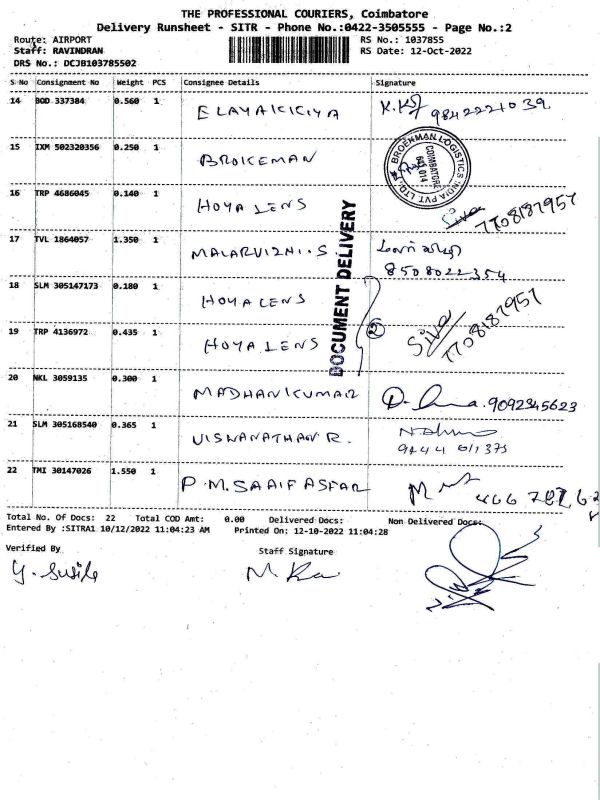 THE PROFESSIONAL COURIERS, Coimbatore
Delivery Runsheet - SITR - Phone No.:0422-3505555 - Page No.:2
Route: AIRPORT RS No.: 1037855
Staff: RAVINDRAN RS Date: 12-Oct-2022
DRS No.: DCJB103785502
S No Consignment No Weight PCS Consignee Details Signature
14 BOD 337384 0.560 1 ELAYAKKIYA 9842221039
15 IXM 502320356 0.250 1 BROKEMAN
BROEKMAN LOGISTICS INDIA PVT. LTD.
COIMBATORE
641 014
16 TRP 4686045 0.140 1 HOYA LENS Siva 7708187957
17 TVL 1864057 1.350 1 MALARVIZHI.S
8508022354
DOCUMENT DELIVERY
18 SLM 305147173 0.180 1 HOYA LENS
19 TRP 4136972 0.435 1 HOYA LENS 2 Siva 7708187957
20 NKL 3059135 0.300 1 MADHANKUMAR 9092345623
21 SLM 305168540 0.365 1 VISWANATHAN R.
9444 011375
22 TMI 30147026 1.550 1 P.M.SAAIF ASFAR
Total No. Of Docs: 22 Total COD Amt: 0.00 Delivered Docs: Non Delivered Docs:
Entered By :SITRA1 10/12/2022 11:04:23 AM Printed On: 12-10-2022 11:04:28
Verified By Staff Signature